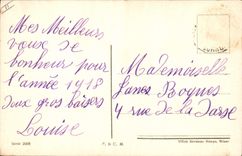 Mes Meilleurs
vœux de
bonheur pour
l'année 1918
Deux gros baisers
Louise
Mademoiselle
Roques
4 rue de la Darse
Serie